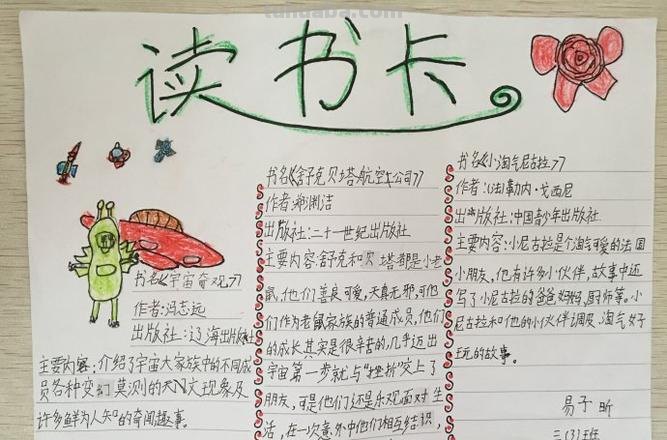 tuhuaba.com
读书卡
书名《宇宙奇观》
作者:冯志远
出版社:辽海出版社
主要内容:介绍了宇宙大家族中的不同成
员各种变幻莫测的天文现象及
许多鲜为人知的奇闻趣事。
书名《舒克贝塔航空公司》
作者:郑渊洁
出版社:二十一世纪出版社
主要内容:舒克和贝塔都是小老
鼠,他们善良可爱,天真无邪,可他
们作为老鼠家族的普通成员,他们
的成长其实是很辛苦的,几乎迈出
宇宙第一步就与"挫折"交上了
朋友,可是他们还是乐观面对生
活,在一次意外中他们相互结识,
书名《小淘气尼古拉》
作者:(法)勒内·戈西尼
出版社:中国青少年出版社
主要内容:小尼古拉是个淘气可爱的法国
小朋友,他有许多小伙伴,故事中还
写了小尼古拉的爸爸妈妈,厨师等。小
尼古拉和他的小伙伴调皮、淘气、好
玩的故事。
易子昕
三(3)班